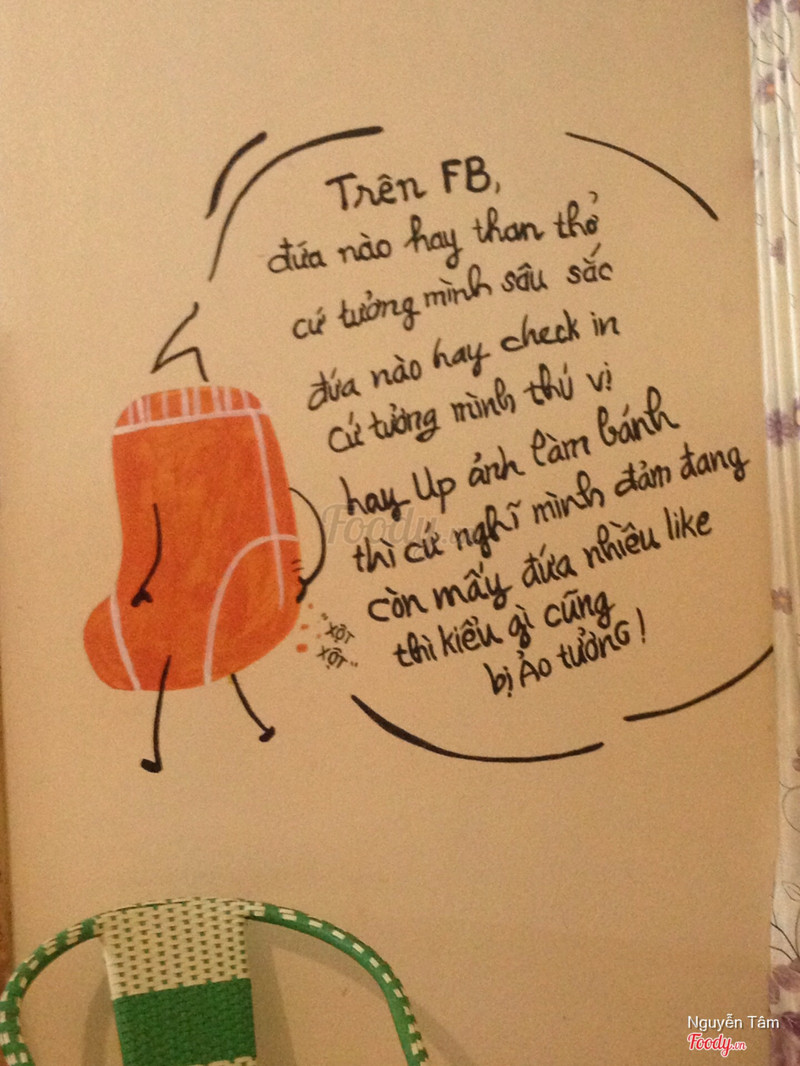 Trên FB,
đứa nào hay than thở
cứ tưởng mình sâu sắc
đứa nào hay check in
cứ tưởng mình thú vị
hay Up ảnh làm bánh
thì cứ nghĩ mình đảm đang
còn mấy đứa nhiều like
thì kiểu gì cũng
bị Ảo tưởng!
"xột
xột"
Foody.vn
Nguyễn Tâm
Foody.vn